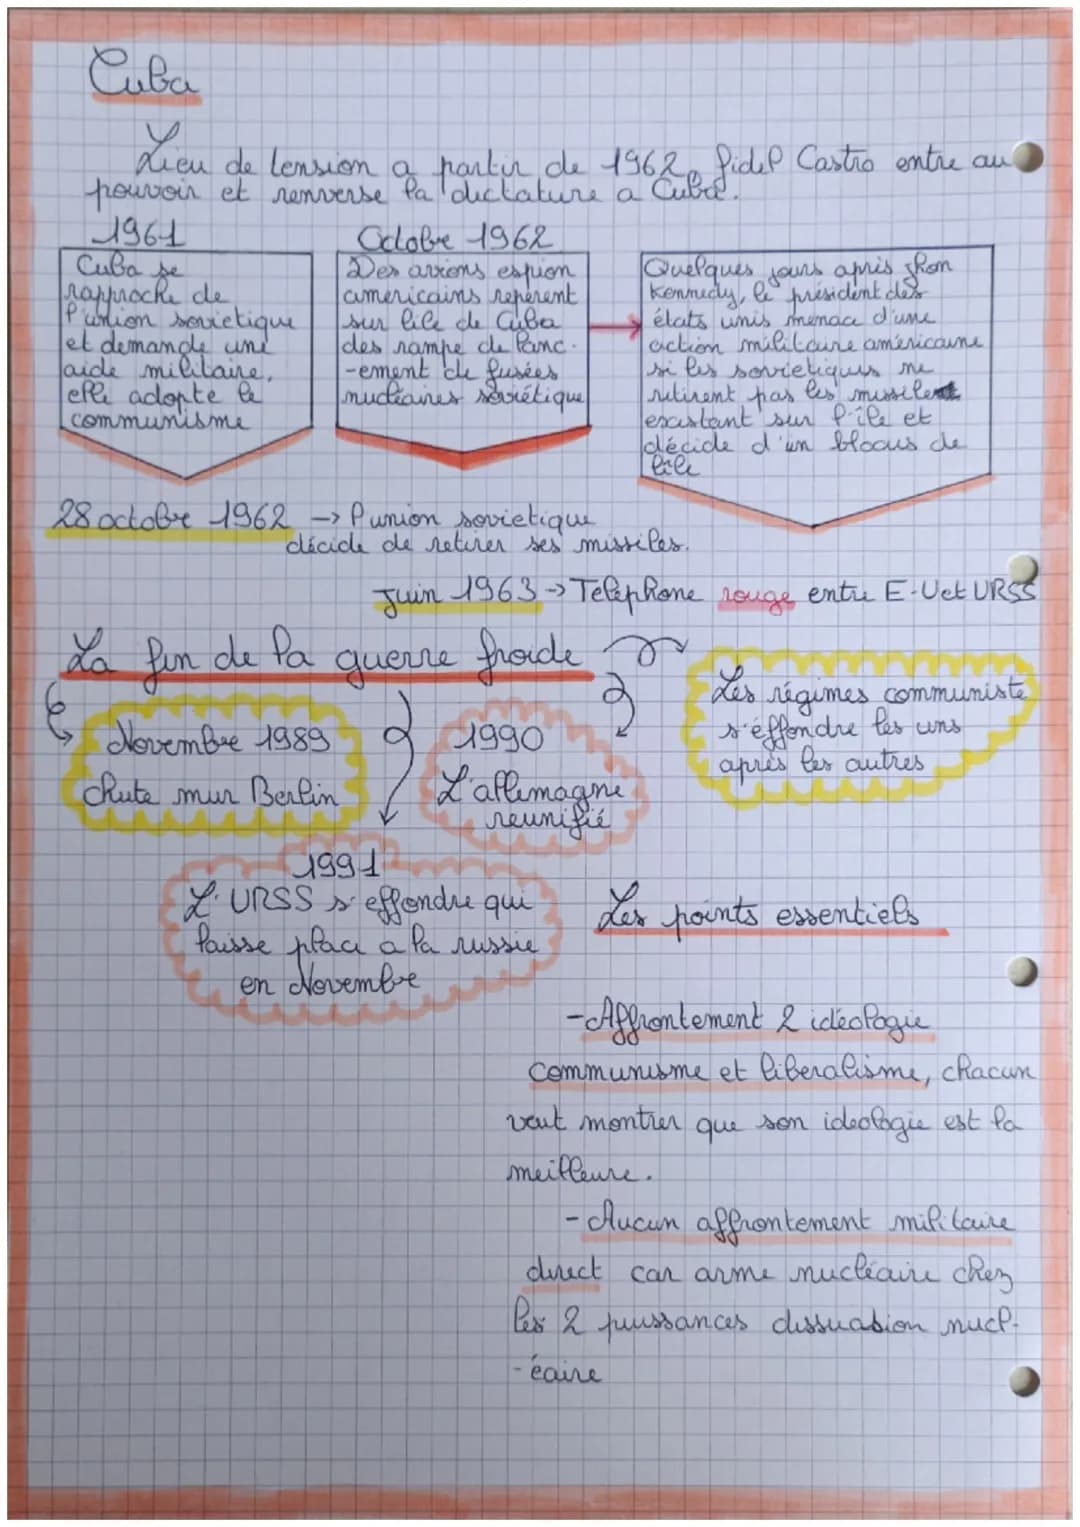 Cuba
Lieu de tension a partir de 1962, fidel Castro entre au
pouvoir et renverse la dictature a Cuba.
1961
Cuba se
rapproche de
l'union sovietique
et demande une
aide militaire,
elle adopte le
communisme
Octobre 1962
Des avions espion
americains repèrent
sur lile de Cuba
des rampe de lanc-
-ement de fusées
nucléaires soviétique
Quelques jours apris Jhon
Kennedy, le président des
états unis menace d'une
action militaire américaine
si les sovietiques ne
retirent pas les missiles
existant sur l'île et
décide d'un blocus de
lile
28 octobre 1962 -> l'union sovietique
décide de retirer ses missiles.
Juin 1963 -> Telephone rouge entre E-U et URSS
La fin de la guerre froide
Novembre 1989
chute mur Berlin
1990
L'allemagne
reunifié
Les régimes communiste
s'éffondre les uns
après les autres
1991
L'URSS s'effondre qui
laisse place a la russie
en Novembre
Les points essentiels
- Affrontement 2 idéologie
communisme et liberalisme, chacun
veut montrer que son ideologie est la
meilleure.
- Aucun affrontement militaire
direct car arme nucléaire chez
les 2 puissances dissuasion nucl-
-éaire